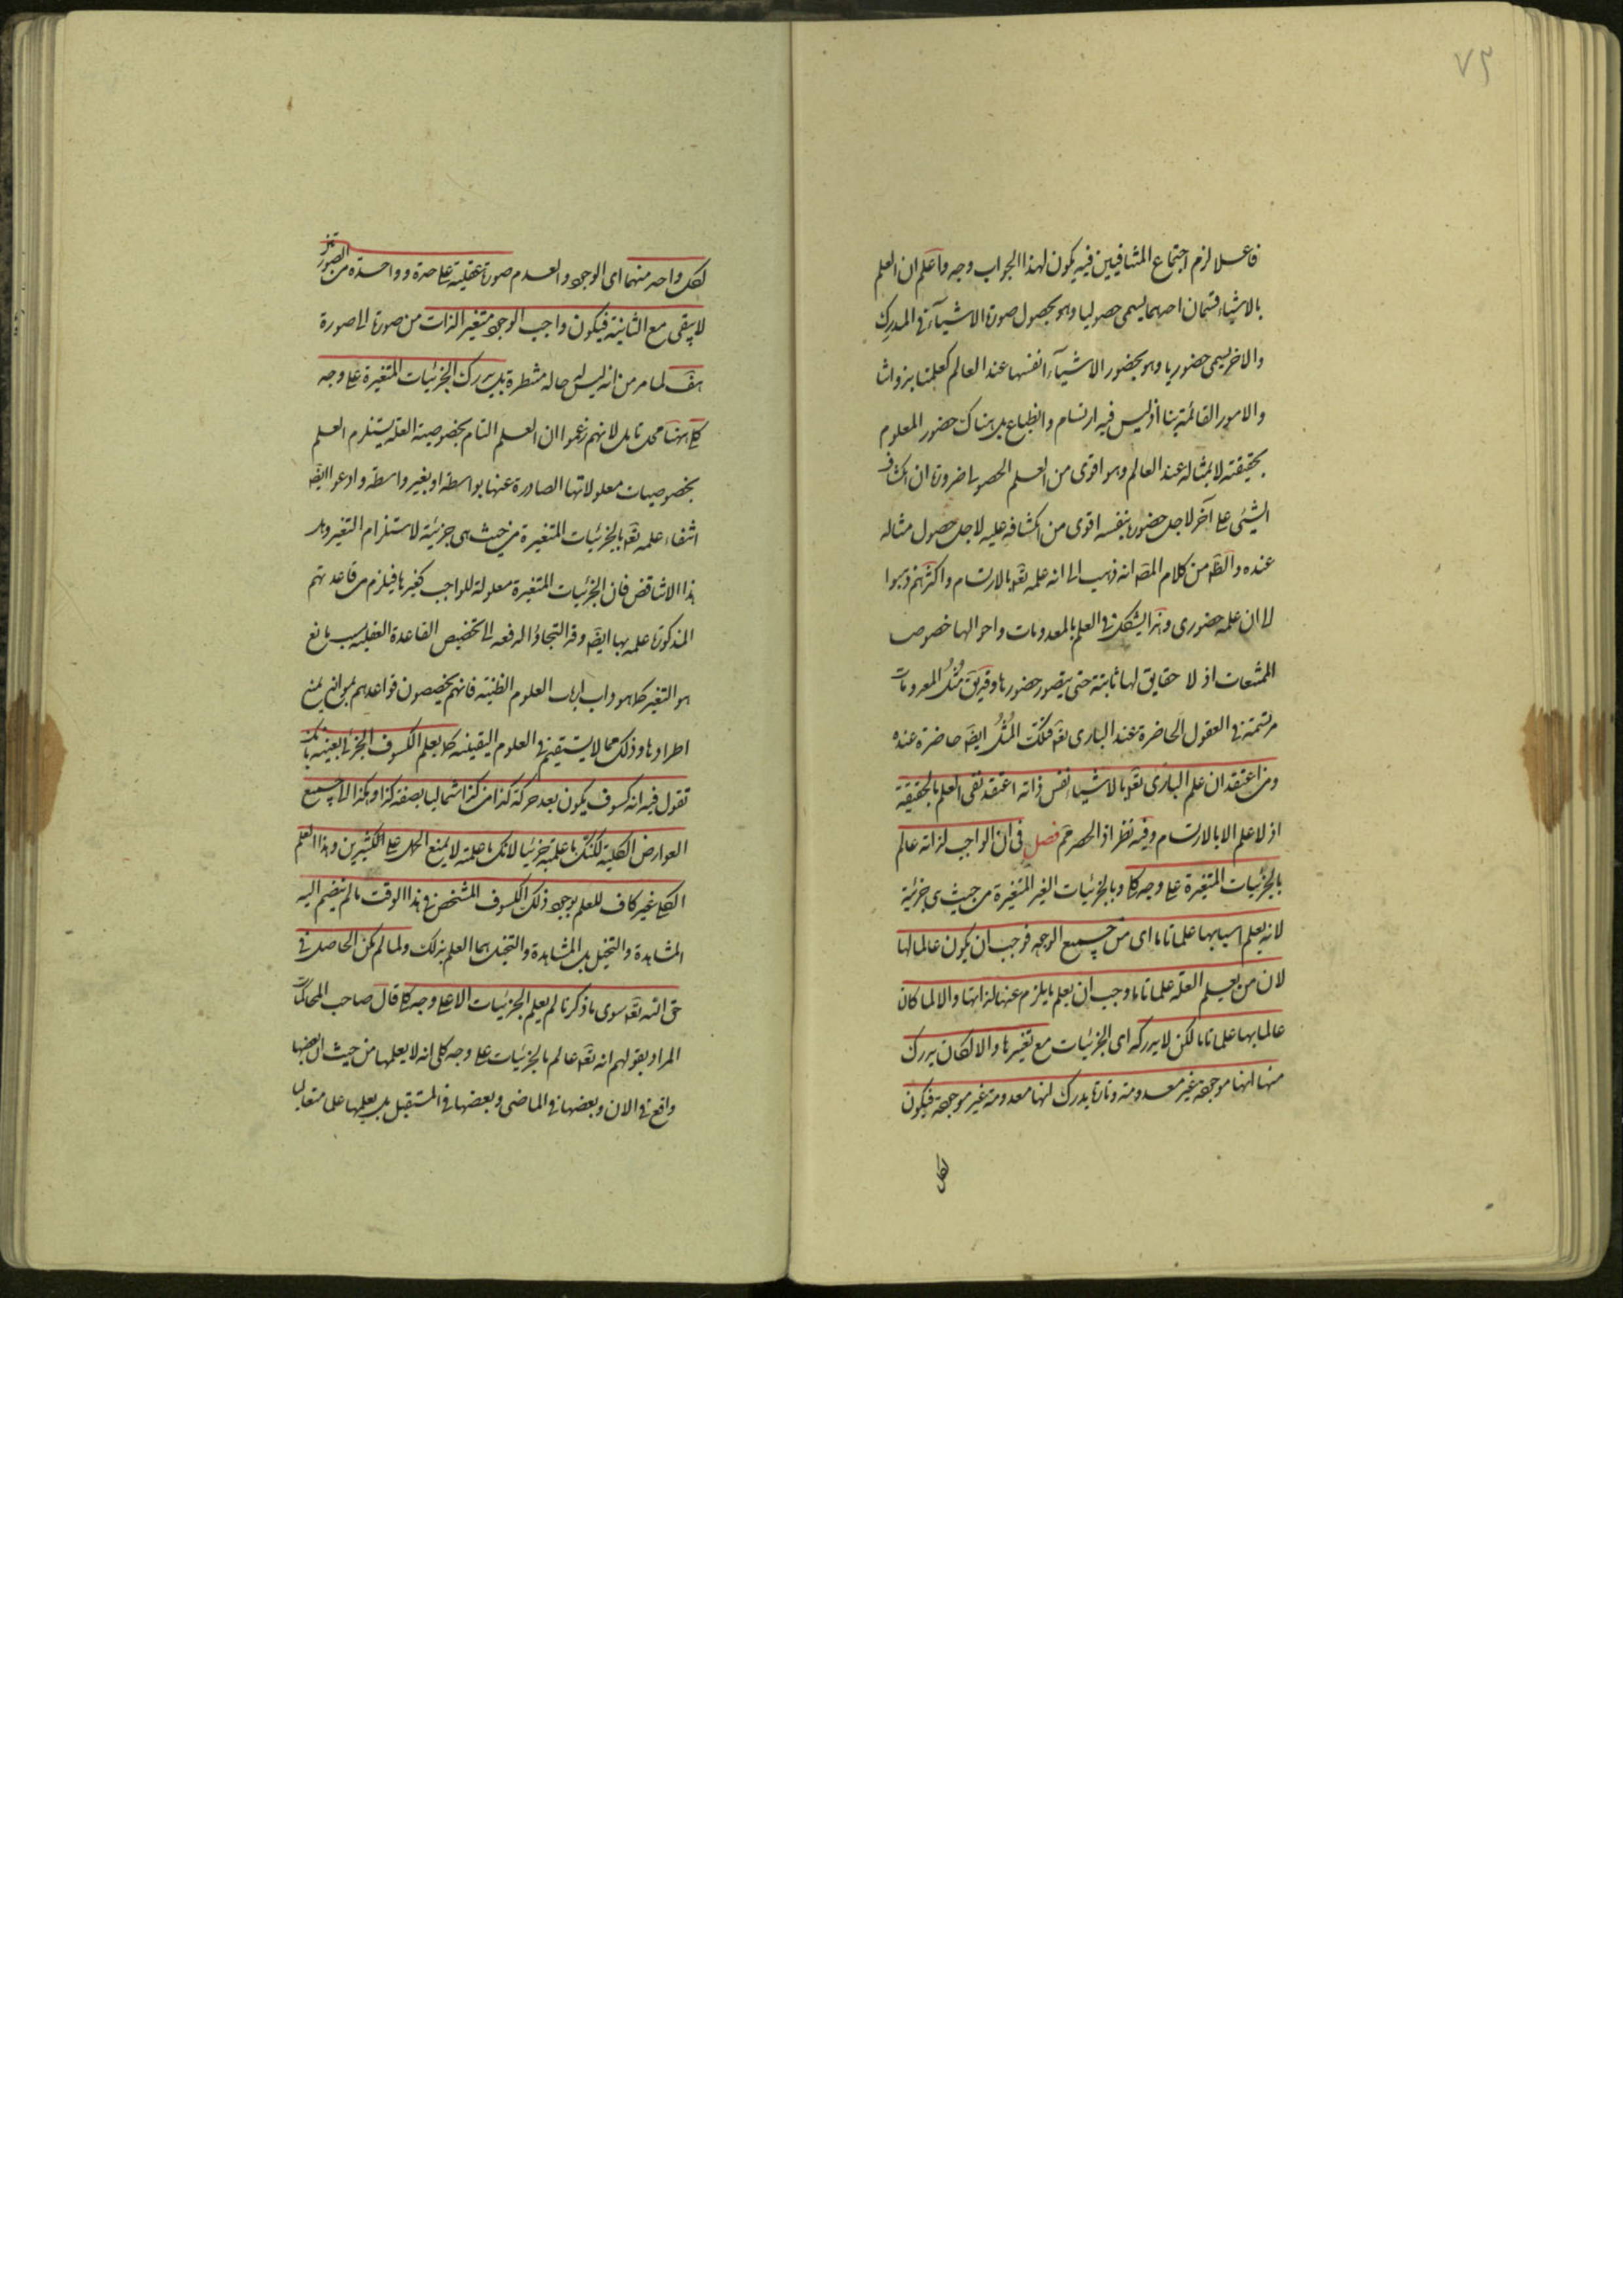 ٧٣
فاعلا لزم اجتماع المتنافيين فيه يكون لهذا الجواب وجه واعلم ان العلم
بالاشياء قسمان احدهما يسمى حصوليا وهو بحصول صورة الاشياء في المدرك
والاخر يسمى حضوريا وهو بحضور الاشياء انفسها عند العالم كعلمنا بذواتنا
والامور القائمة بنا اذ ليس فيه ارتسام وانطباع بل هناك حضور المعلوم
بحقيقته لا بمثاله عند العالم وهو اقوى من العلم الحصولي ضرورة ان انكشاف
الشيئ على آخر لاجل حضوره بنفسه اقوى من انكشافه عليه لاجل حصول مثاله
عنده والظ من كلام المص انه ذهب الى انه علمه تع بالارتسام واكثرهم ذهبوا
الى ان علمه حضورى وهذا يشكل في العلم بالمعدومات واحوالها خصوصا
الممتنعات اذ لا حقايق لها ثابتة حتى يتصور حضورها وقد يق مثل المعدومات
مرتسمة في العقول الحاضرة عند البارى تع فتلك المثل ايض حاضرة عنده
ومن اعتقد ان علم البارى تع بالاشياء نفس ذاته اعتقد نفى العلم بالحقيقة
اذ لا علم الا بالارتسام وفيه نظر اذ الحصر مم فصل في ان الواجب لذاته عالم
بالجزئيات المتغيرة على وجه كلى وبالجزئيات الغير المتغيرة من حيث هى جزئية
لانه يعلم اسبابها علما تاما اى من جميع الوجوه فوجب ان يكون عالما لها
لان من يعلم العلة علما تاما وجب ان يعلم ما يلزم عنها لذاتها والا لما كان
عالما بها علما تاما لكن لا يدركه اى الجزئيات مع تغيرها والا لكان يدرك
منها انها موجودة غير معدومة وتارة يدرك انها معدومة غير موجودة فيكون
لكل
لكل واحد منهما اى الوجود والعدم صورة عقلية على حدة وواحدة من الصورتين
لا يبقى مع الثانية فيكون واجب الوجود متغير الذات من صورة الى صورة
هف لما مر من انه ليس له حالة منتظرة بل يدرك الجزئيات المتغيرة على وجه
كلى ههنا محل تامل لانهم زعموا ان العلم التام بخصوصية العلة يستلزم العلم
بخصوصيات معلولاتها الصادرة عنها بواسطة او بغير واسطة وادعوا ايض
انتفاء علمه تع بالجزئيات المتغيرة من حيث هى جزئية لاستلزام التغير وهل
هذا الا تناقض فان الجزئيات المتغيرة معلولة للواجب كغيرها فيلزم من قاعدتهم
المذكورة علمه بها ايض وقد التجاؤا لدفعه الى تخصيص القاعدة العقلية بسبب مانع
هو التغير كما هو داب ارباب العلوم الظنية فانهم يخصصون قواعدهم بموانع يمنع
اطرادها وذلك مما لا يستقيم في العلوم اليقينية كما يعلم الكسوف الجزئى بعينه بانك
تقول فيه انه كسوف يكون بعد حركة كذا من كذا شماليا بصفة كذا وهكذا الى جميع
العوارض الكلية لكنك ما علمته جزئيا لانك ما علمته لا يمنع الحمل على الكثيرين وهذا العلم
الكلى غير كاف للعلم بوجود ذلك الكسوف المشخص في هذا الوقت ما لم ينضم اليه
المشاهدة والتخيل بل المشاهدة والتخيل هما العلم بذلك ولما لم يكن الحاصل في
حق الله تع سوى ما ذكرنا لم يعلم الجزئيات الا على وجه كلى قال صاحب المحاكمات
المراد بقولهم انه تع عالم بالجزئيات على وجه كلى انه لا يعلمها من حيث ان بعضها
واقع في الان وبعضها في الماضى وبعضها في المستقبل بل يعلمها علما متعاليا